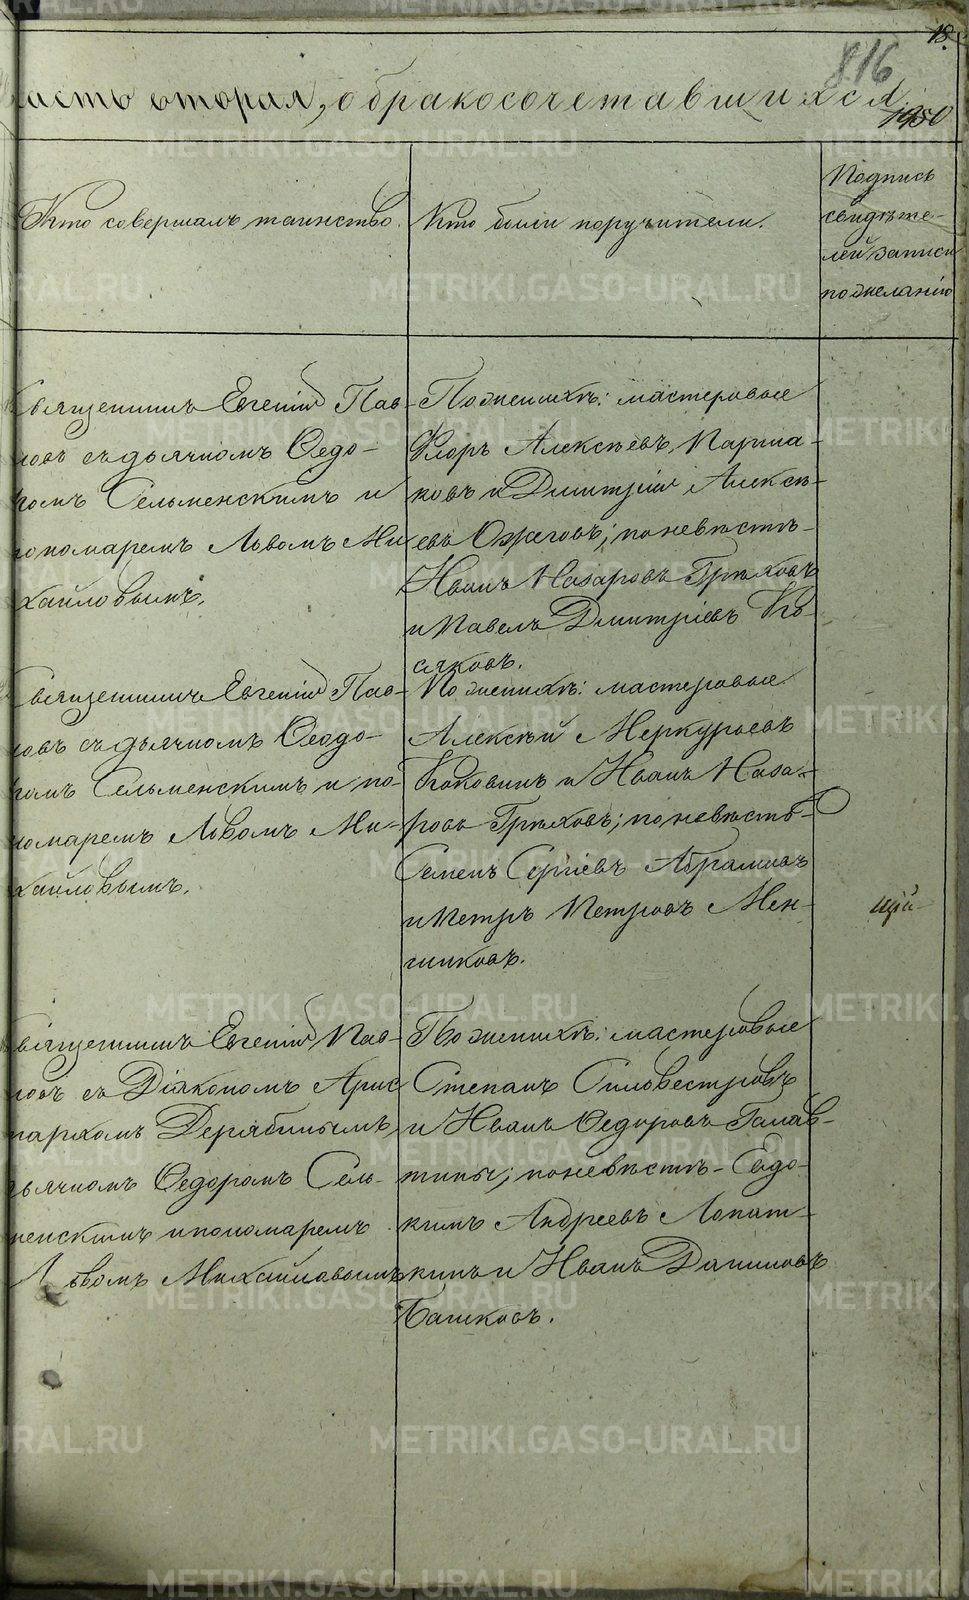 18.
816
асть вторая, о бракосочетавшихся
1950
Кто совершалъ таинство.
Кто были поручители.
Подпись
свидѣте-
лей записи
по желанію
Священникъ Евгеній Пав-
ловъ съ дьячкомъ Ѳедо-
ромъ Сельменскимъ и
пономаремъ Львомъ Ми
хайловымъ.
По женихѣ: мастеровые
Флоръ Алексѣевъ Парша-
ковъ и Дмитрій Алексѣ-
евъ Ожеговъ; по невѣстѣ-
Иванъ Назаровъ Грѣховъ
и Павелъ Дмитріевъ Ко-
сяковъ.
Священникъ Евгеній Пав-
ловъ съ дьячкомъ Ѳеодо-
ромъ Сельменскимъ и по-
номаремъ Львомъ Ми-
хайловымъ.
По женихѣ: мастеровые
Алексѣй Меркурьевъ
Коковинъ и Иванъ Наза-
ровъ Грѣховъ; по невѣстѣ-
Семенъ Сергіевъ Абрамовъ
и Петръ Петровъ Мен-
шиковъ.
щій
Священникъ Евгеній Пав-
ловъ съ Діакономъ Арис
тархомъ Дерябинымъ,
дьячкомъ Ѳедоромъ Сель-
менскимъ и пономаремъ
Львомъ Михайловымъ
По женихѣ: мастеровые
Степанъ Силовестровъ
и Иванъ Ѳедоровъ Галав-
тины; по невѣстѣ- Евдо-
кимъ Андреевъ Лопат-
кинъ и Иванъ Даниловъ
Башковъ.
METRIKI.GASO-URAL.RU